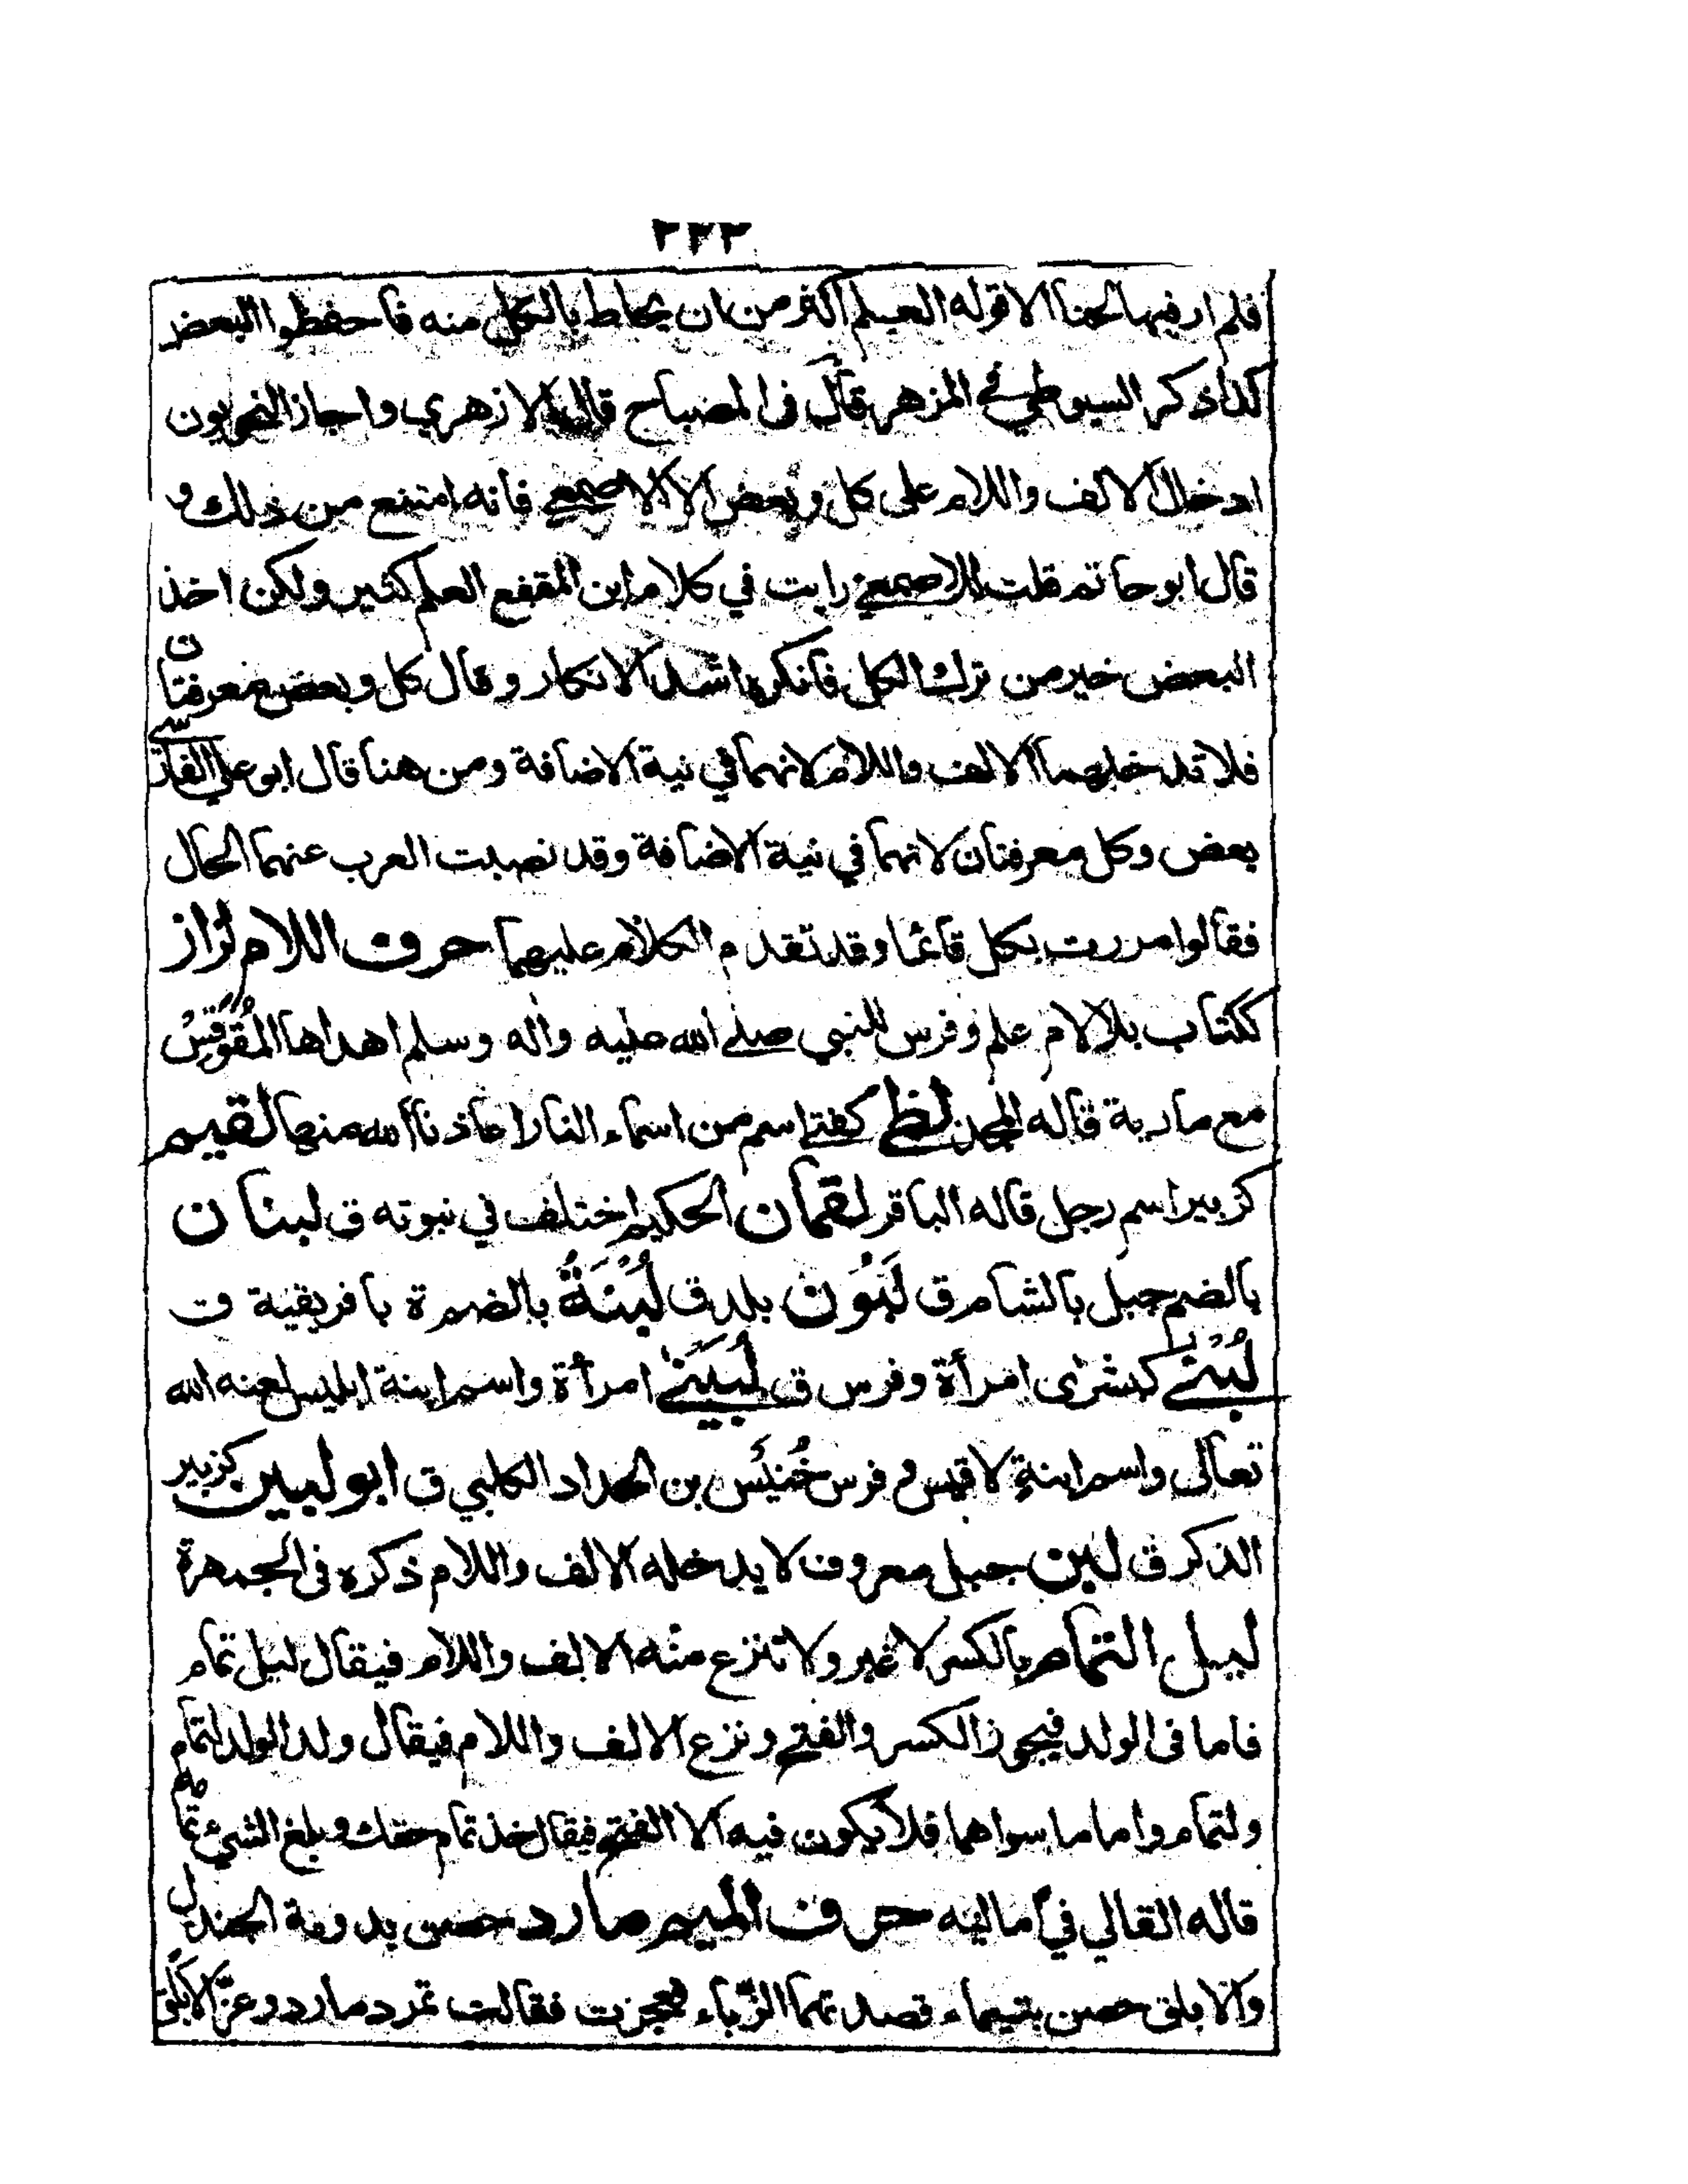 ٢٢٢
فلم ار فيها لحنا الا قوله العلم اكثر من ان يحاط بالكل منه فاحفظوا البعض
كذا ذكر السيوطي في المزهر قال في المصباح قال الازهري واجاز النحويون
ادخال الالف واللام على كل وبعض الا الاصمعي فانه امتنع من ذلك و
قال ابو حاتم قلت للاصمعي رايت في كلام ابن المقفع العلم كثير ولكن اخذ
البعض خير من ترك الكل فانكره اشد الانكار وقال كل وبعض معرفتان
فلا تدخلهما الالف واللام لانهما في نية الاضافة ومن هنا قال ابو علي الفارسي
بعض وكل معرفتان لانهما في نية الاضافة وقد نصبت العرب عنهما الحال
فقالوا مررت بكل قائما وقد تقدم الكلام عليهما حرف اللام لزاز
ككتاب بلا لام علم وفرس للنبي صلى الله عليه واله وسلم اهداها المُقَوْقِسْ
مع مارية قاله المجد لظى كفتى اسم من اسماء النار اعاذنا الله منها لقيم
كزبير اسم رجل قاله الباقر لقمان الحكيم اختلف في نبوته ق لبنان
بالضم جبل بالشام ق لَبُون بلد ق لُبْنَةُ بالضم ة بافريقية ق
لُبْنٰى كبشرى امرأة وفرس ق لُبَيْنٰى امرأة واسم ابنة ابليس لعنه الله
تعالى واسم ابنة لاقيس وفرس خُنَيْس بن الحداد الكلبي ق ابو لبين كزبير
الذكر ق لبن جبل معروف لا يدخله الالف واللام ذكره في الجمهرة
ليل التمام بالكسر لا غير ولا تنزع منه الالف واللام فيقال ليل تمام
فاما في الولد فيجوز الكسر والفتح ونزع الالف واللام فيقال ولد الولد لتمام
ولتمام واما ما سواهما فلا يكون فيه الا الفتح فيقال خذ تمام حقك وبلغ الشيء تمامه
قاله القالي في اماليه حرف الميم مارد حصن بدومة الجندل
والابلق حصن بتيماء قصدتهما الزباء فعجزت فقالت تمرد مارد وعز الابلق